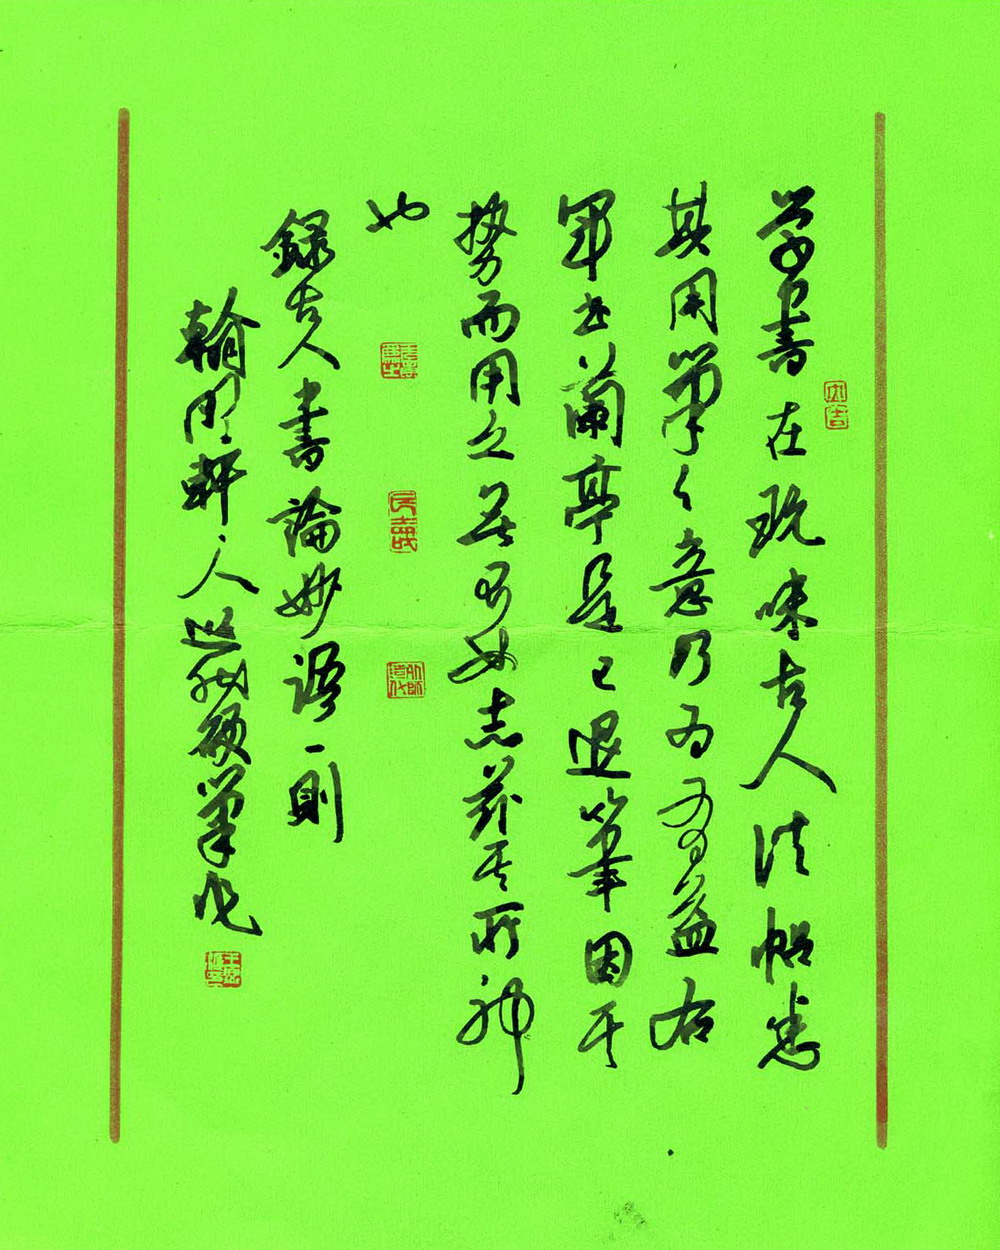 学書在玩味古人法帖悉
其用筆之意乃为有益右
軍书蘭亭是已退筆因其
勢而用之无不如志茲其所神
也
録古人書論妙語一則
翰軒人筆